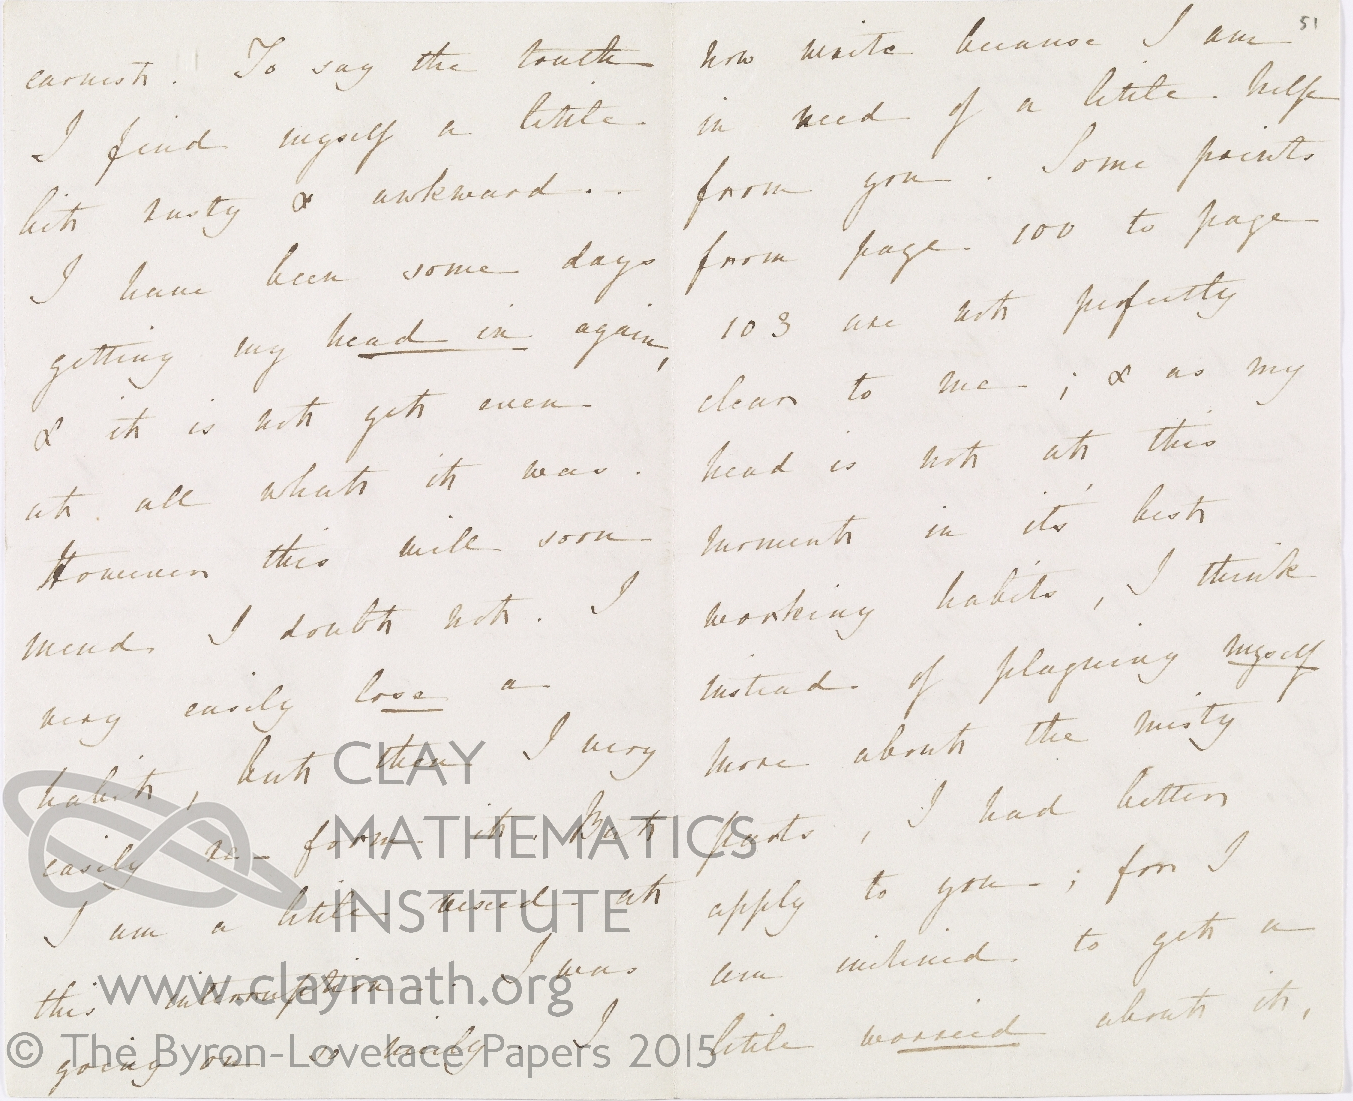 earnest. To say the truth
I find myself a little
bit rusty & awkward..
I have been some days
getting my head in again,
& it is not yet even
at all what it was.
However this will soon
mend I doubt not. I
very easily lose a
habit, but then I very
easily re-form it. But
I am a little vexed at
this interruption. I was
going on so nicely. I
51
now write because I am
in need of a little help
from you. Some points
from page 100 to page
103 are not perfectly
clear to me; & as my
head is not at this
moment in it's best
working habits, I think
instead of plaguing myself
more about the misty
parts, I had better
apply to you; for I
am inclined to get a
little worried about it,
CLAY
MATHEMATICS
INSTITUTE
www.claymath.org
© The Byron-Lovelace Papers 2015